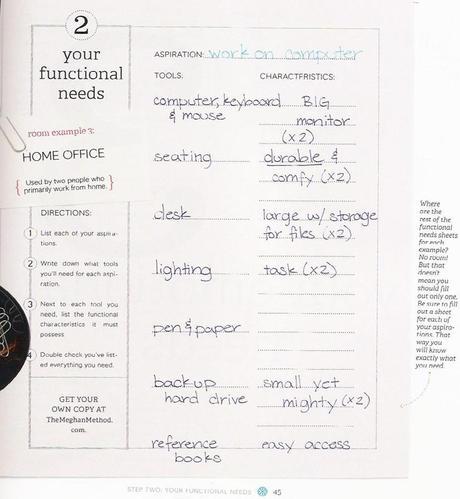 2
your
functional
needs
room example 3:
HOME OFFICE
{ Used by two people who
primarily work from home. }
DIRECTIONS:
1 List each of your aspira-
tions.
2 Write down what tools
you'll need for each aspi-
ration.
3 Next to each tool you
need, list the functional
characteristics it must
possess
4 Double check you've list-
ed everything you need.
GET YOUR
OWN COPY AT
TheMeghanMethod.
com.
ASPIRATION: work on computer
TOOLS: CHARACTERISTICS:
computer, keyboard BIG
& mouse monitor
(x2)
seating durable &
comfy (x2)
desk large w/ storage
for files (x2)
lighting task (x2)
pen & paper
back-up small yet
hard drive mighty (x2)
reference easy access
books
Where
are the
rest of the
functional
needs sheets
for each
example?
No room!
But that
doesn't
mean you
should fill
out only one.
Be sure to fill
out a sheet
for each of
your aspira-
tions. That
way you
will know
exactly what
you need.
STEP TWO: YOUR FUNCTIONAL NEEDS 45